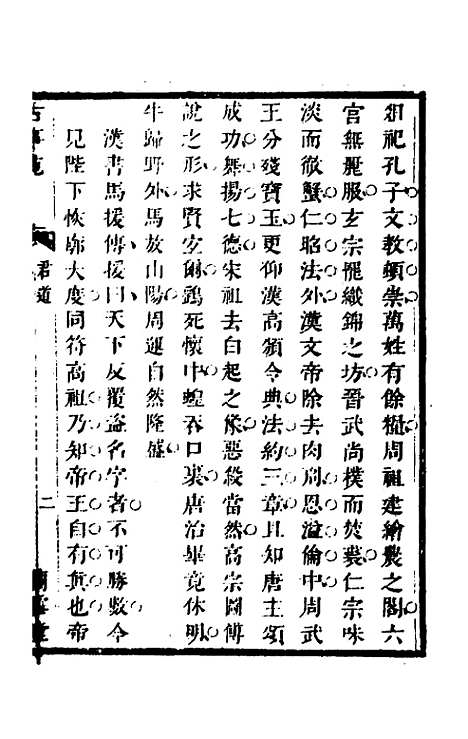 俎祀孔子文教頓崇萬姓有餘糧周祖建繪農之閣六
宮無麗服玄宗罷織錦之坊晉武尚樸而焚裘仁宗味
淡而徹蟹仁昭法外漢文帝除去肉刑恩溢倫中周武
王分殘寶玉更仰漢高頒令典法約三章且知唐主頌
成功舞揚七德宋祖去白起之像惡殺當然高宗圖傅
說之形求賢安爾鷂死懷中蝗吞口裏唐治畢竟休明
牛歸野外馬放山陽周運自然隆盛
漢書馬援傳援曰天下反覆盜名字者不可勝數今
見陛下恢廓大度同符高祖乃知帝王自有真也帝
君道
二